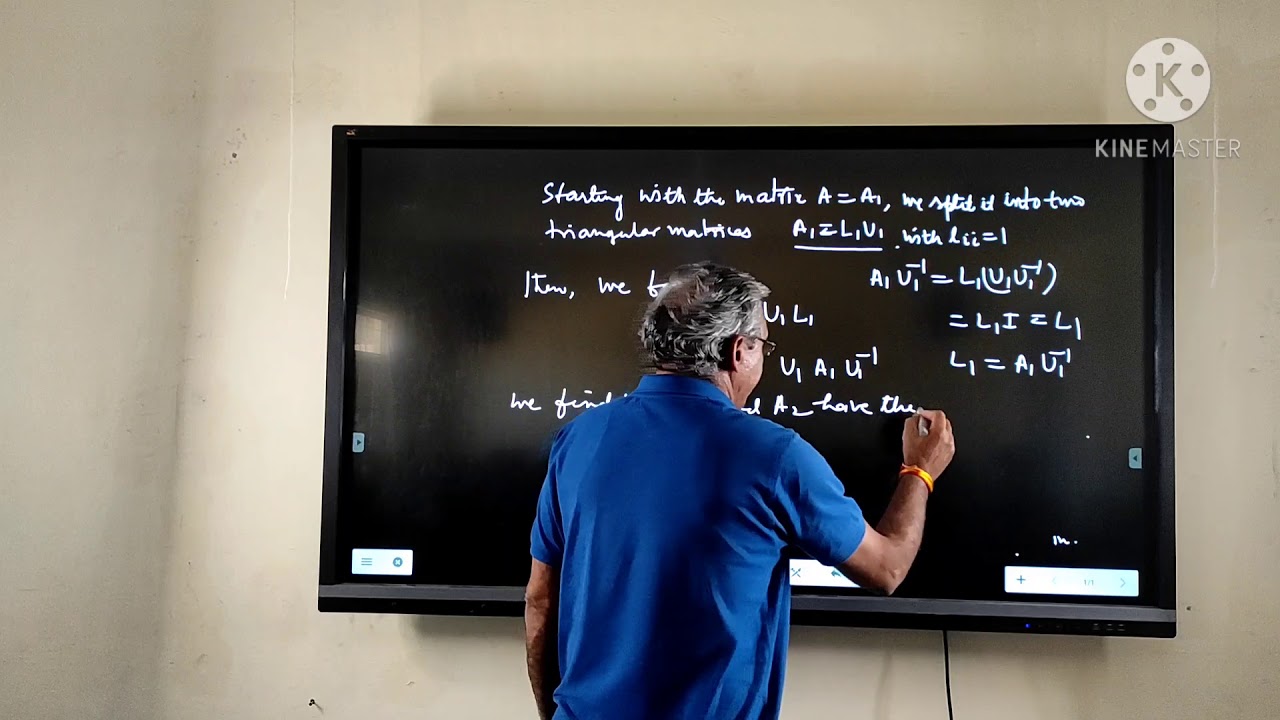 K
KINEMASTER
Starting with the matrix A = A₁, we split it into two
triangular matrices A₁ = L₁U₁ with lᵢᵢ = 1
Then, we A₁ U₁⁻¹ = L₁(U₁U₁⁻¹)
U₁ L₁ = L₁ I = L₁
U₁ A₁ U₁⁻¹ L₁ = A₁ U₁⁻¹
We find A₂ have the
1/1